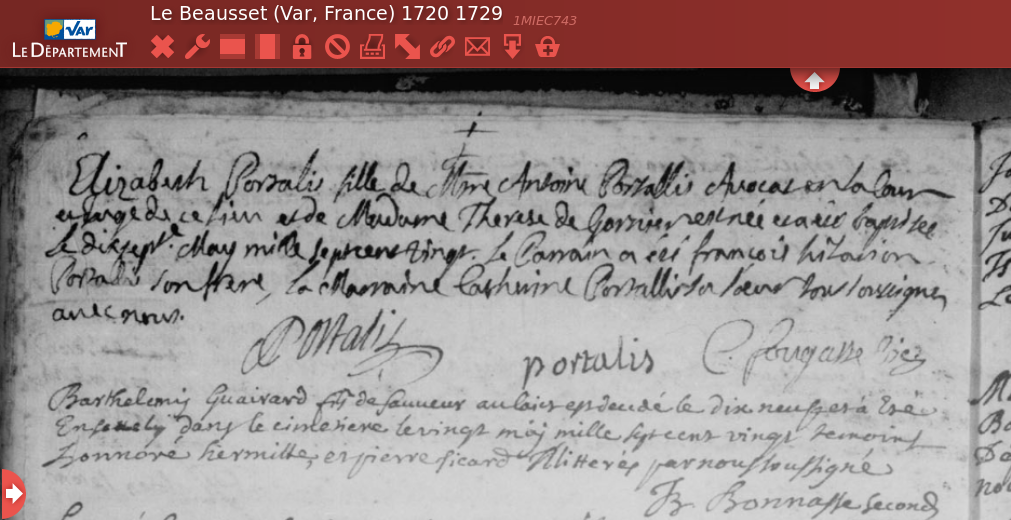 Le Beausset (Var, France) 1720 1729
1MIEC743
Var
LE DÉPARTEMENT
Elizabeth Portalis fille de Mre Antoine Portallis Avocat en la Cour
et juge de ce lieu et de Madame Therese de Garnier est née et a été baptisée
Le dixsept.e May mille sept cent vingt. Le Parrain a été françois hilarion
Portalis son frere, La Marraine Catherine Portallis sa sœur tous soussignes
avec nous.
Portalis
portalis
C. fougasse
Barthelemy Guairard fils de sauveur au lois est decedé le dix neuf et a Esté
Ensevely dans le cimetiere le vingt maj mille sept cent vingt temoins
honnoré hermitte, et pierre sicard Illitterés par nous soussigné
B. Bonnasse second.